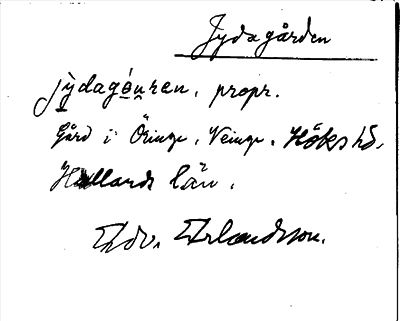 Jydagården
jỳdagóu̯ren, propr.
Gård i Öringe, Veinge, Höks hd,
Hallands län.
Edv. Erlandsson.